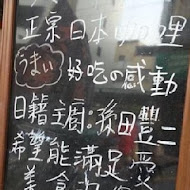 正宗日本咖哩
うまい 好吃の感動
日籍主廚:森田豐二
希望能滿足愛
美食